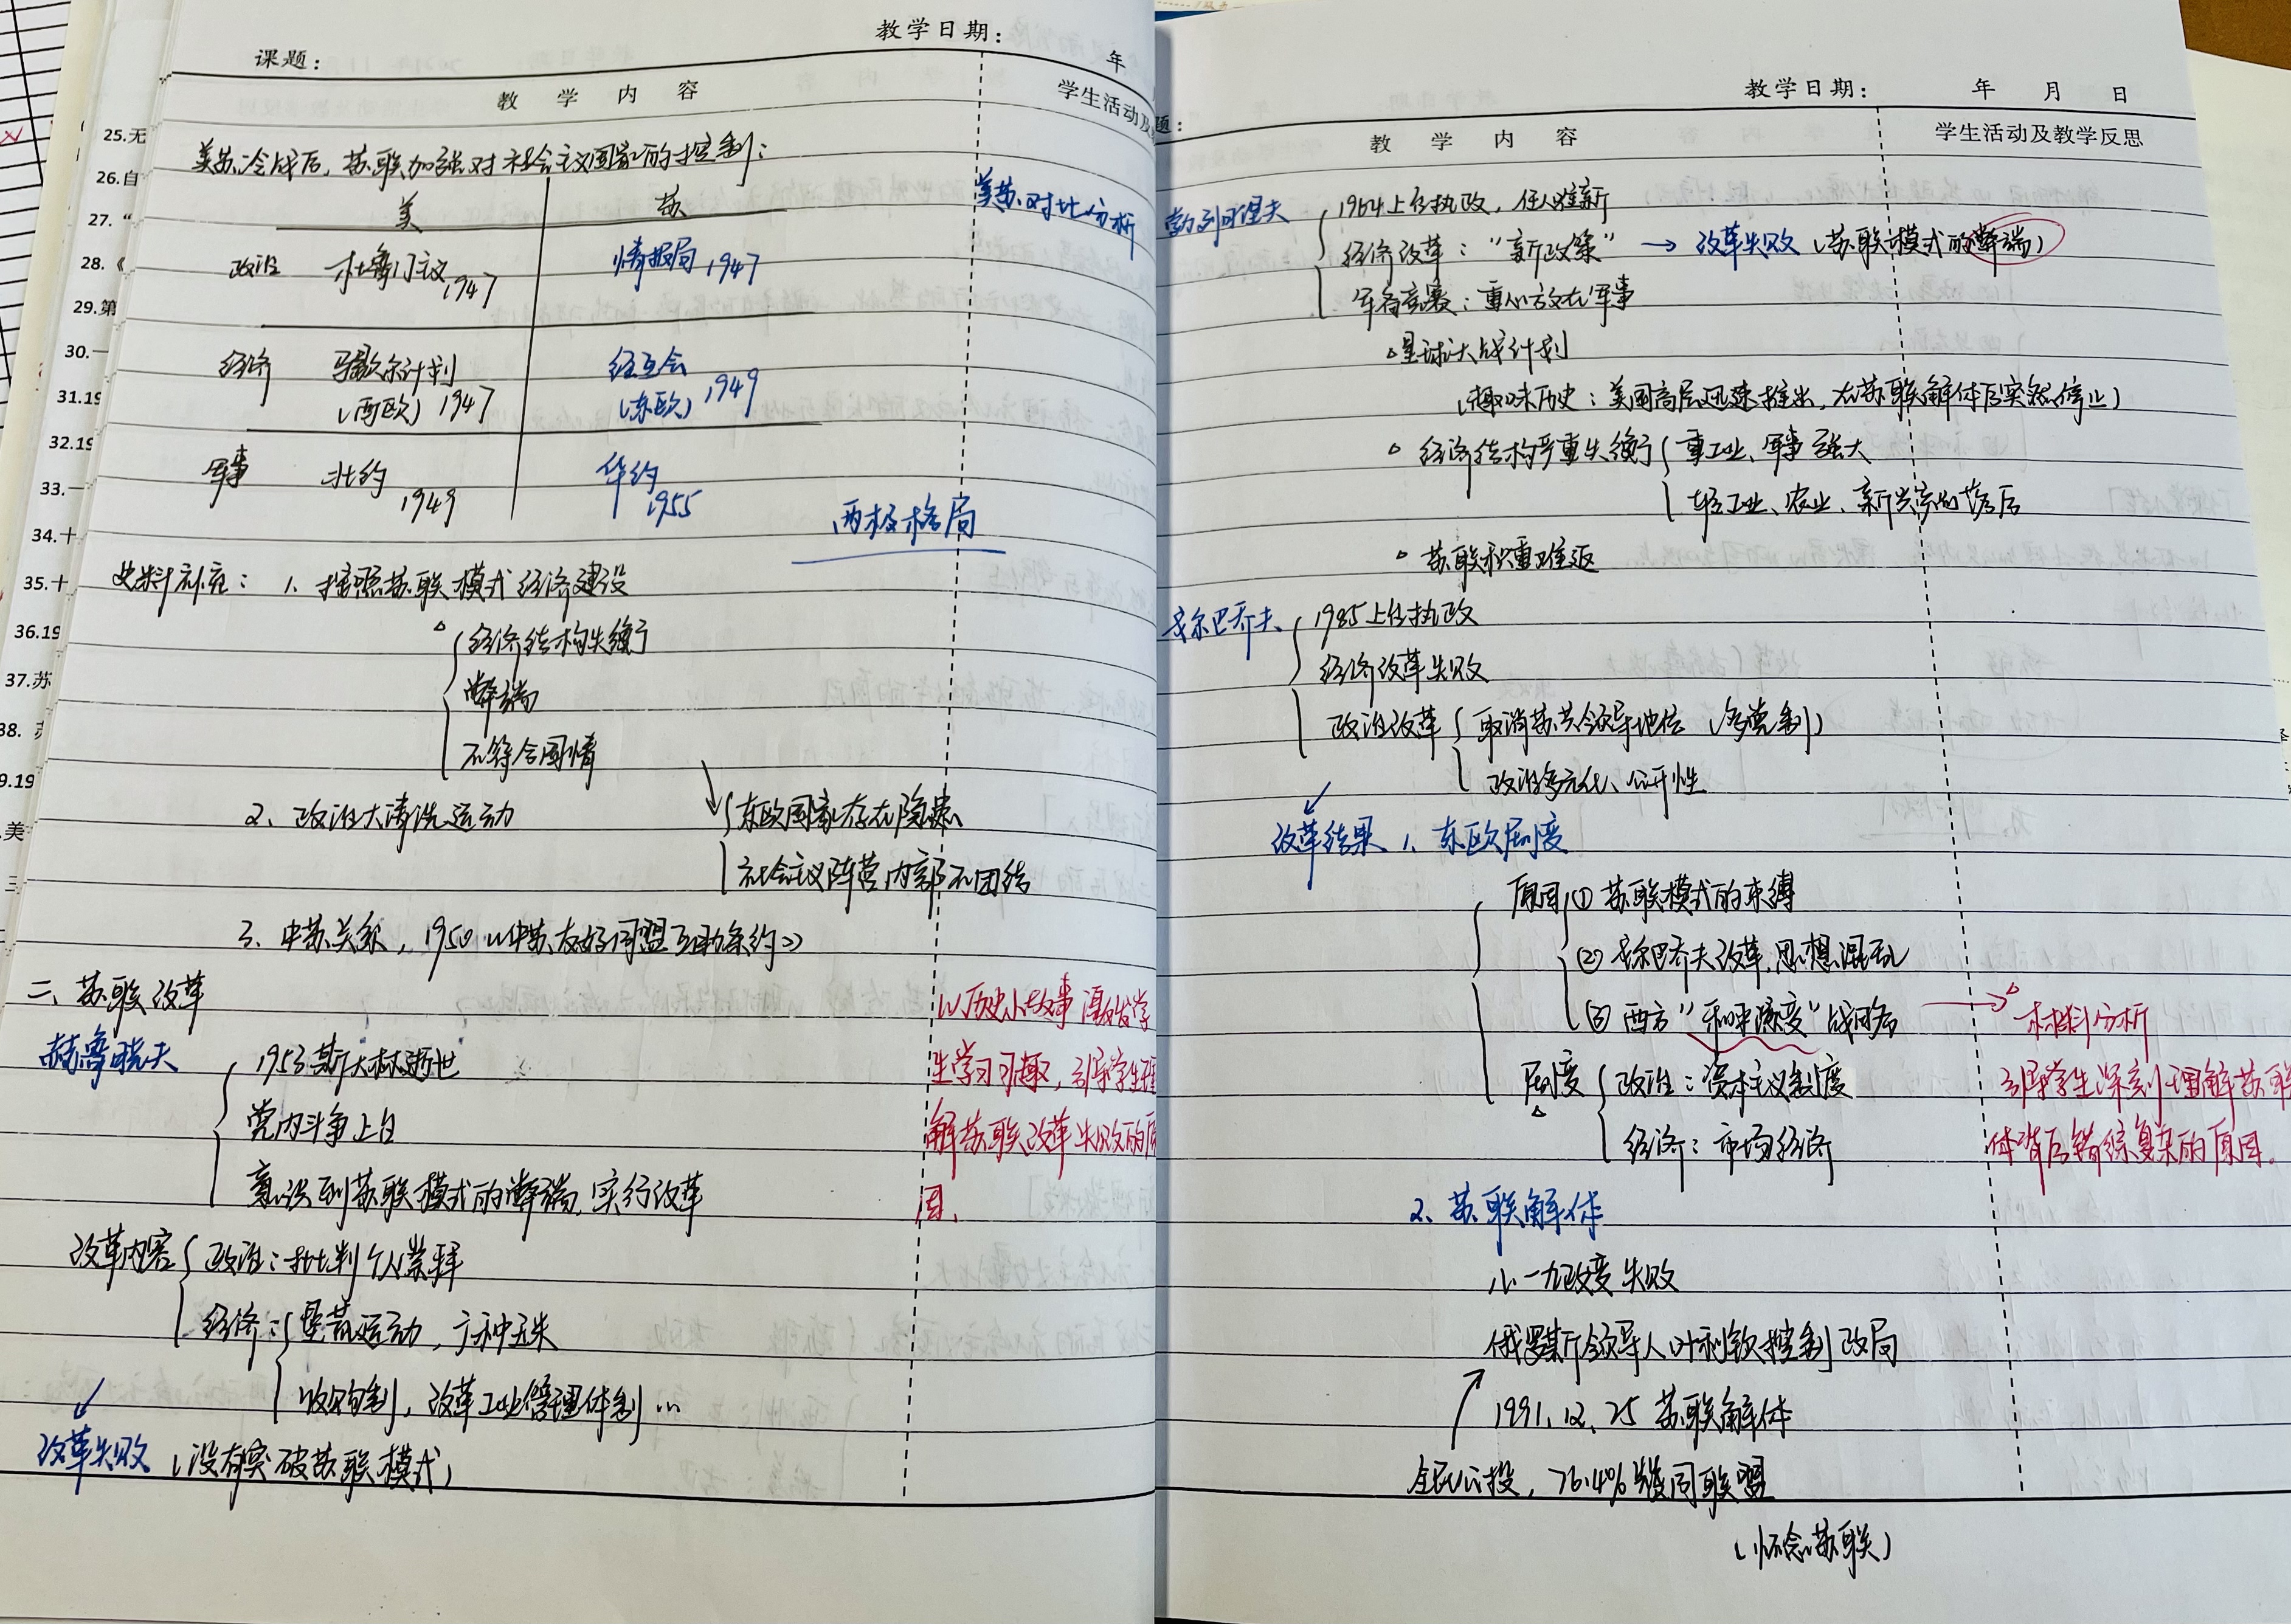 教学日期：
年
课题：
教 学 内 容
学生活动及
25.无
26.自
27.“
28.《
29.第
30.一
31.19
32.19
33.一
34.十
35.十
36.19
37.苏
38.
9.19
美
三
美苏冷战后，苏联加强对社会主义国家的控制：
美 苏
美苏对比分析
政治 杜鲁门主义 1947 情报局 1947
经济 马歇尔计划 经互会
（西欧）1947 （东欧）1949
军事 北约 1949 华约 1955
两极格局
史料补充：1、按照苏联模式经济建设
经济结构失衡
弊端
不符合国情
2、政治大清洗运动
东欧国家存在隐患
社会主义阵营内部不团结
3、中苏关系，1950《中苏友好同盟互助条约》
二、苏联改革
赫鲁晓夫
1953斯大林逝世
党内斗争上台
意识到苏联模式的弊端，实行改革
以历史小故事激发学
生学习习趣，引导学生理
解苏联改革失败的原
因、
改革内容 政治：批判个人崇拜
经济：垦荒运动，广种玉米
收购制，改革工业管理体制…
改革失败（没有突破苏联模式）
教学日期： 年 月 日
题：
教 学 内 容
学生活动及教学反思
勃列日涅夫
1964上台执政，任人唯新
经济改革：“新政策” → 改革失败（苏联模式的弊端）
军备竞赛：重心放在军事
星球大战计划
（趣味历史：美国高层迅速推出，在苏联解体后突然停止）
经济结构严重失衡 重工业、军事强大
轻工业、农业、新兴产业落后
苏联积重难返
戈尔巴乔夫
1985上台执政
经济改革失败
政治改革 取消苏共领导地位（多党制）
政治多元化、公开性
改革结果 1、东欧剧变
原因 ① 苏联模式的束缚
② 戈尔巴乔夫改革，思想混乱
③ 西方“和平演变”战略 → 材料分析
引导学生深刻理解苏联
体背后错综复杂的原因。
剧变 政治：资本主义制度
经济：市场经济
2、苏联解体
八一九政变失败
俄罗斯领导人叶利钦控制政局
1991.12.25 苏联解体
全民公投，76.4%赞同联盟
（怀念苏联）